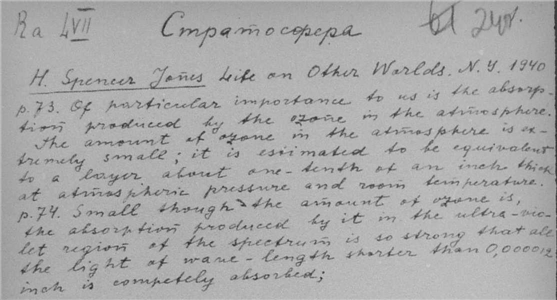 Ra LVII Стратосфера
H. Spencer Jones Life on Other Worlds. N.Y. 1940
p. 73. Of particular importance to us is the absorp-
tion produced by the ozone in the atmosphere.
The amount of ozone in the atmosphere is ex-
tremely small; it is estimated to be equivalent
to a layer about one-tenth of an inch thick
at atmospheric pressure and room temperature.
p. 74. Small though the amount of ozone is,
the absorption produced by it in the ultra-vio-
let region of the spectrum is so strong that all
the light of wave-length shorter than 0,000012
inch is competely absorbed;